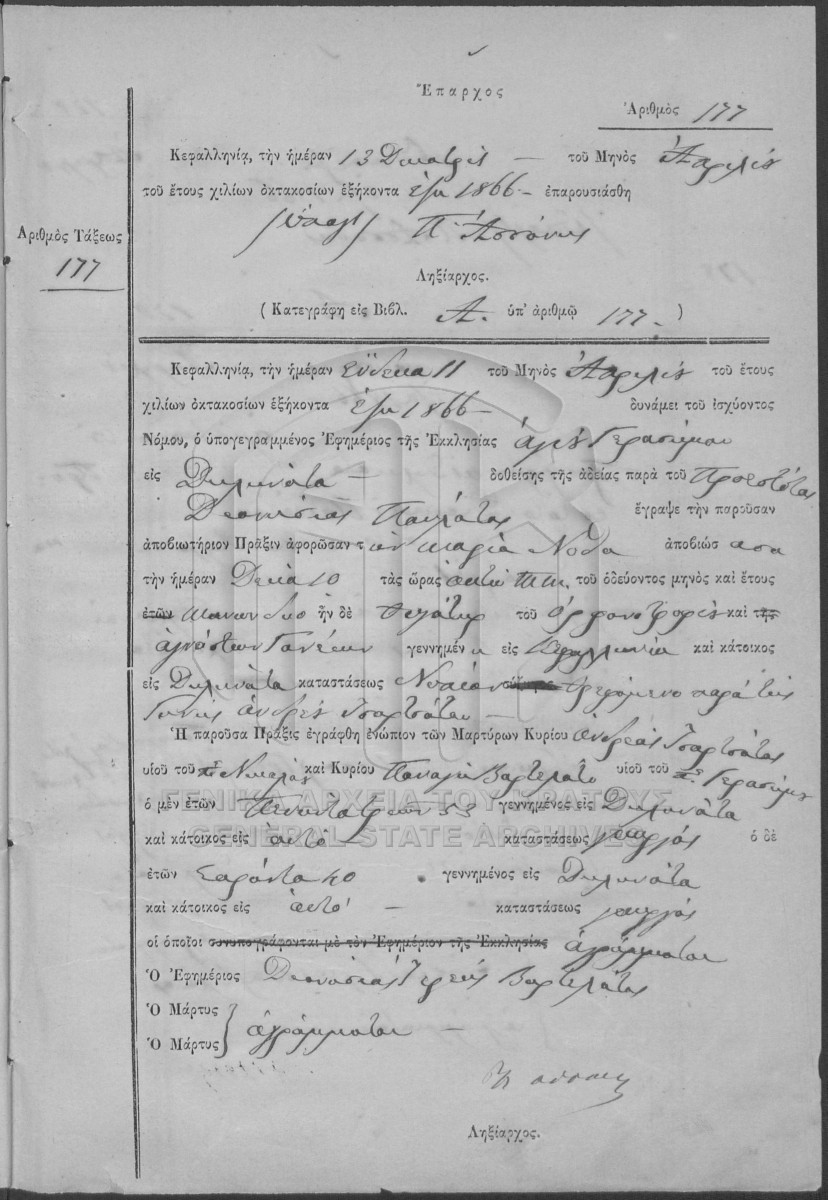 Ἔπαρχος
Ἀριθμὸς 177
Κεφαλληνίᾳ, τὴν ἡμέραν 13 Δεκατρεῖς — τοῦ Μηνὸς Ἀπριλίου
τοῦ ἔτους χιλίων ὀκτακοσίων ἑξήκοντα ἕξη 1866 — ἐπαρουσιάσθη
Π.
Ἀριθμὸς Τάξεως
177
Ληξίαρχος.
( Κατεγράφη εἰς Βιβλ. Α. ὑπ' ἀριθμῷ 177. )
Κεφαλληνίᾳ, τὴν ἡμέραν ἕνδεκα 11 τοῦ Μηνὸς Ἀπριλίου τοῦ ἔτους
χιλίων ὀκτακοσίων ἑξήκοντα ἕξη 1866 — δυνάμει τοῦ ἰσχύοντος
Νόμου, ὁ ὑπογεγραμμένος Ἐφημέριος τῆς Ἐκκλησίας ἁγίου Γερασίμου
εἰς Διλινάτα — δοθείσης τῆς ἀδείας παρὰ τοῦ Προεστότος
Διονισίου Παυλάτος ἔγραψε τὴν παροῦσαν
ἀποβιωτήριον Πρᾶξιν ἀφορῶσαν τὴν μαρία Νόθα ἀποβιώσασα
τὴν ἡμέραν Δέκα 10 τὰς ὥρας ὀκτώ π.μ. τοῦ ὁδεύοντος μηνὸς καὶ ἔτους
ἐτῶν μηνων δυο ἦν δὲ θυγάτηρ τοῦ ὀρφανοτροφίου καὶ τῆς
ἀγνόστων Γονέων γεννημένη εἰς Κεφαλληνία καὶ κάτοικος
εἰς Διλινάτα καταστάσεως Νηπίον τρεφόμενο παρὰ τῆς
Γυνῆς ἀνδρέου Τσαρτσάτου —
Ἡ παροῦσα Πρᾶξις ἐγράφθη ἐνώπιον τῶν Μαρτύρων Κυρίου ἀνδρέας Τσαρτσάτος
υἱοῦ τοῦ πο Νικολάου καὶ Κυρίου Παναγὴ Βαρτελάτο υἱοῦ τοῦ πο Γερασίμου
ὁ μὲν ἐτῶν Πενῆντατριων 53 γεννημένος εἰς Διλινάτα
καὶ κάτοικος εἰς αὐτό καταστάσεως γεοργός ὁ δὲ
ἐτῶν Σαράντα 40 γεννημένος εἰς Διλινάτα
καὶ κάτοικος εἰς ἀυτό — καταστάσεως γεοργός
οἱ ὁποῖοι συνυπογράφονται μὲ τὸν Ἐφημέριον τῆς Ἐκκλησίας ἀγράμματοι
Ὁ Ἐφημέριος Διονίσιος Ἱερεύς Βαρτελάτος
Ὁ Μάρτυς
Ὁ Μάρτυς } ἀγράμματοι —
Ληξίαρχος.
ΓΕΝΙΚΑ ΑΡΧΕΙΑ ΤΟΥ ΚΡΑΤΟΥΣ
GENERAL STATE ARCHIVES